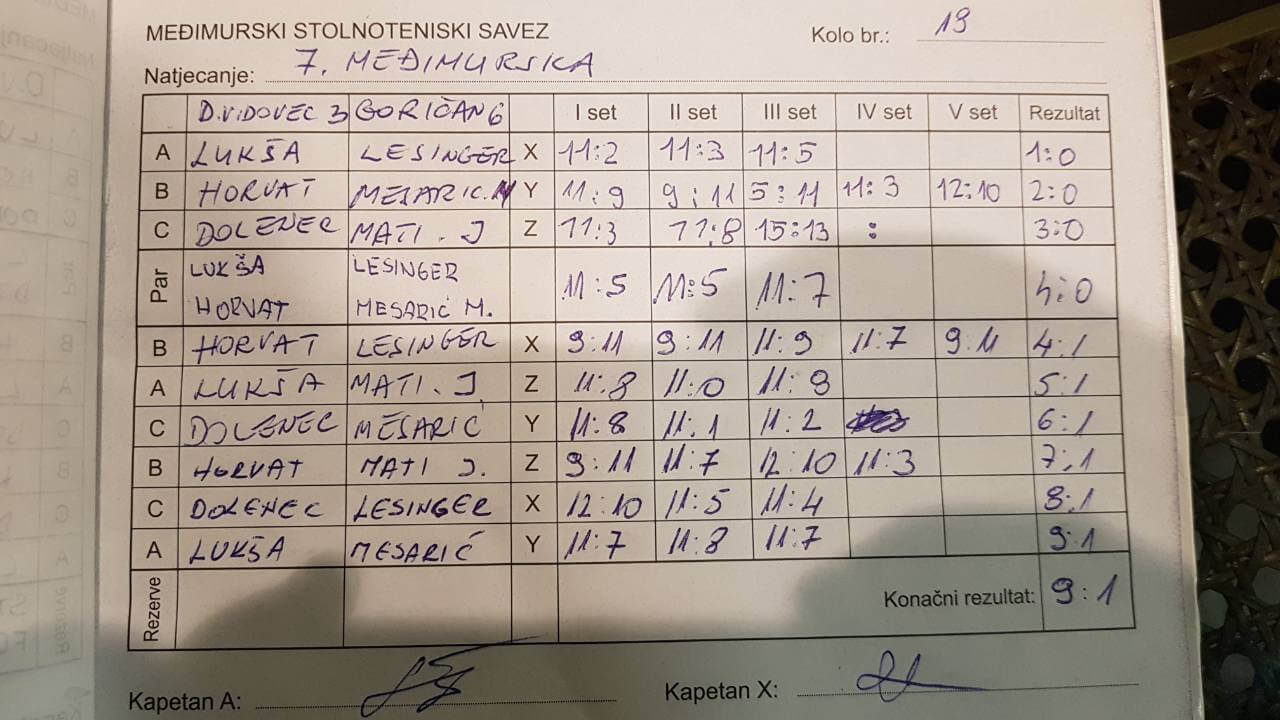 MEĐIMURSKI STOLNOTENISKI SAVEZ
Kolo br.: 19
Natjecanje: 7. MEĐIMURSKA
D.VIDOVEC 3 GORIČAN 6 I set II set III set IV set V set Rezultat
A LUKŠA LESINGER X 11:2 11:3 11:5 1:0
B HORVAT MESARIC.M Y 11:9 9:11 5:11 11:3 12:10 2:0
C DOLENEC MATI. J Z 11:3 11:8 15:13 : 3:0
Par LUKŠA HORVAT LESINGER MESARIĆ M. 11:5 11:5 11:7 4:0
B HORVAT LESINGER X 9:11 9:11 11:9 11:7 9:11 4:1
A LUKŠA MATI. J. Z 11:8 11:0 11:9 5:1
C DOLENEC MESARIĆ Y 11:8 11:1 11:2 6:1
B HORVAT MATI J. Z 9:11 11:7 12:10 11:3 7:1
C DOLENEC LESINGER X 12:10 11:5 11:4 8:1
A LUKŠA MESARIĆ Y 11:7 11:8 11:7 9:1
Rezerve Konačni rezultat: 9:1
Kapetan A: Kapetan X: